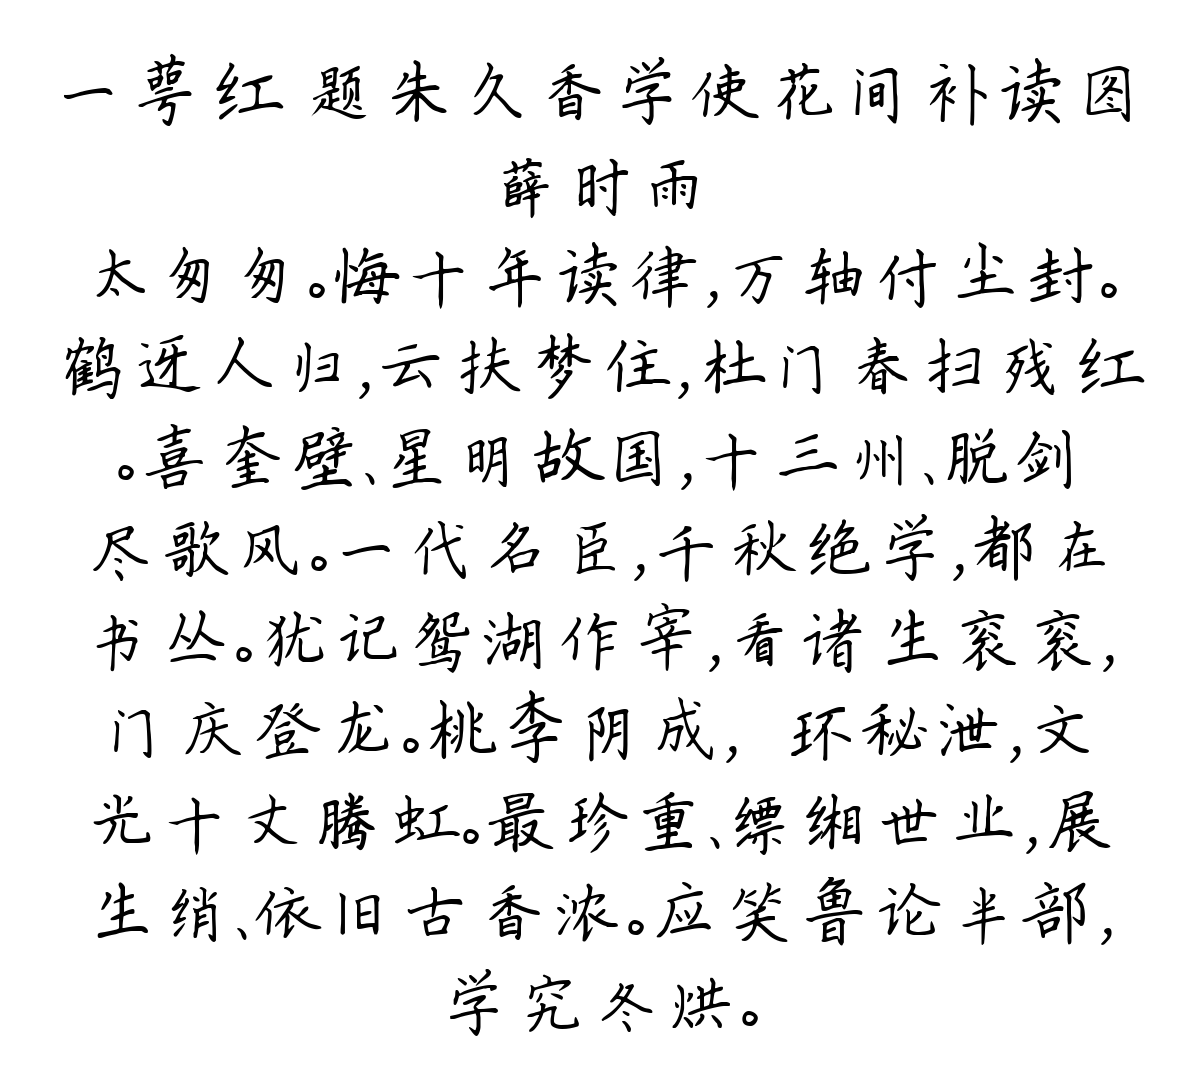 一萼红 题朱久香学使花间补读图
薛时雨
太匆匆。悔十年读律,万轴付尘封。
鹤迓人归,云扶梦住,杜门春扫残红
。喜奎壁、星明故国,十三州、脱剑
尽歌风。一代名臣,千秋绝学,都在
书丛。犹记鸳湖作宰,看诸生衮衮,
门庆登龙。桃李阴成，环秘泄,文
光十丈腾虹。最珍重、缥缃世业,展
生绡、依旧古香浓。应笑鲁论半部,
学究冬烘。